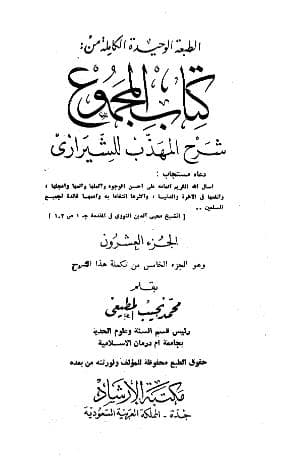 الطبعة الوحيدة الكاملة من :
كتاب المجموع
شرح المهذب للشيرازى
دعاء مستجاب :
اسأل الله الكريم اتمامه على احسن الوجوه واكملها واتمها واعجلها ،
وانفعها فى الآخرة والدنيا ، واكثرها انتفاعا به واعمها فائدة لجميع
المسلمين ..
( الشيخ محيى الدين النووى فى المقدمة جـ ١ ص ١،٢ )
الجزء العشرون
وهو الجزء الخامس من تكملة هذا الشرح
بقلم
محمد نجيب المطيعى
رئيس قسم السنة وعلوم الحديث
بجامعة ام درمان الاسلامية
حقوق الطبع محفوظة للمؤلف ولورثته من بعده
مكتبة الإرشاد
جدة - المملكة العربية السعودية